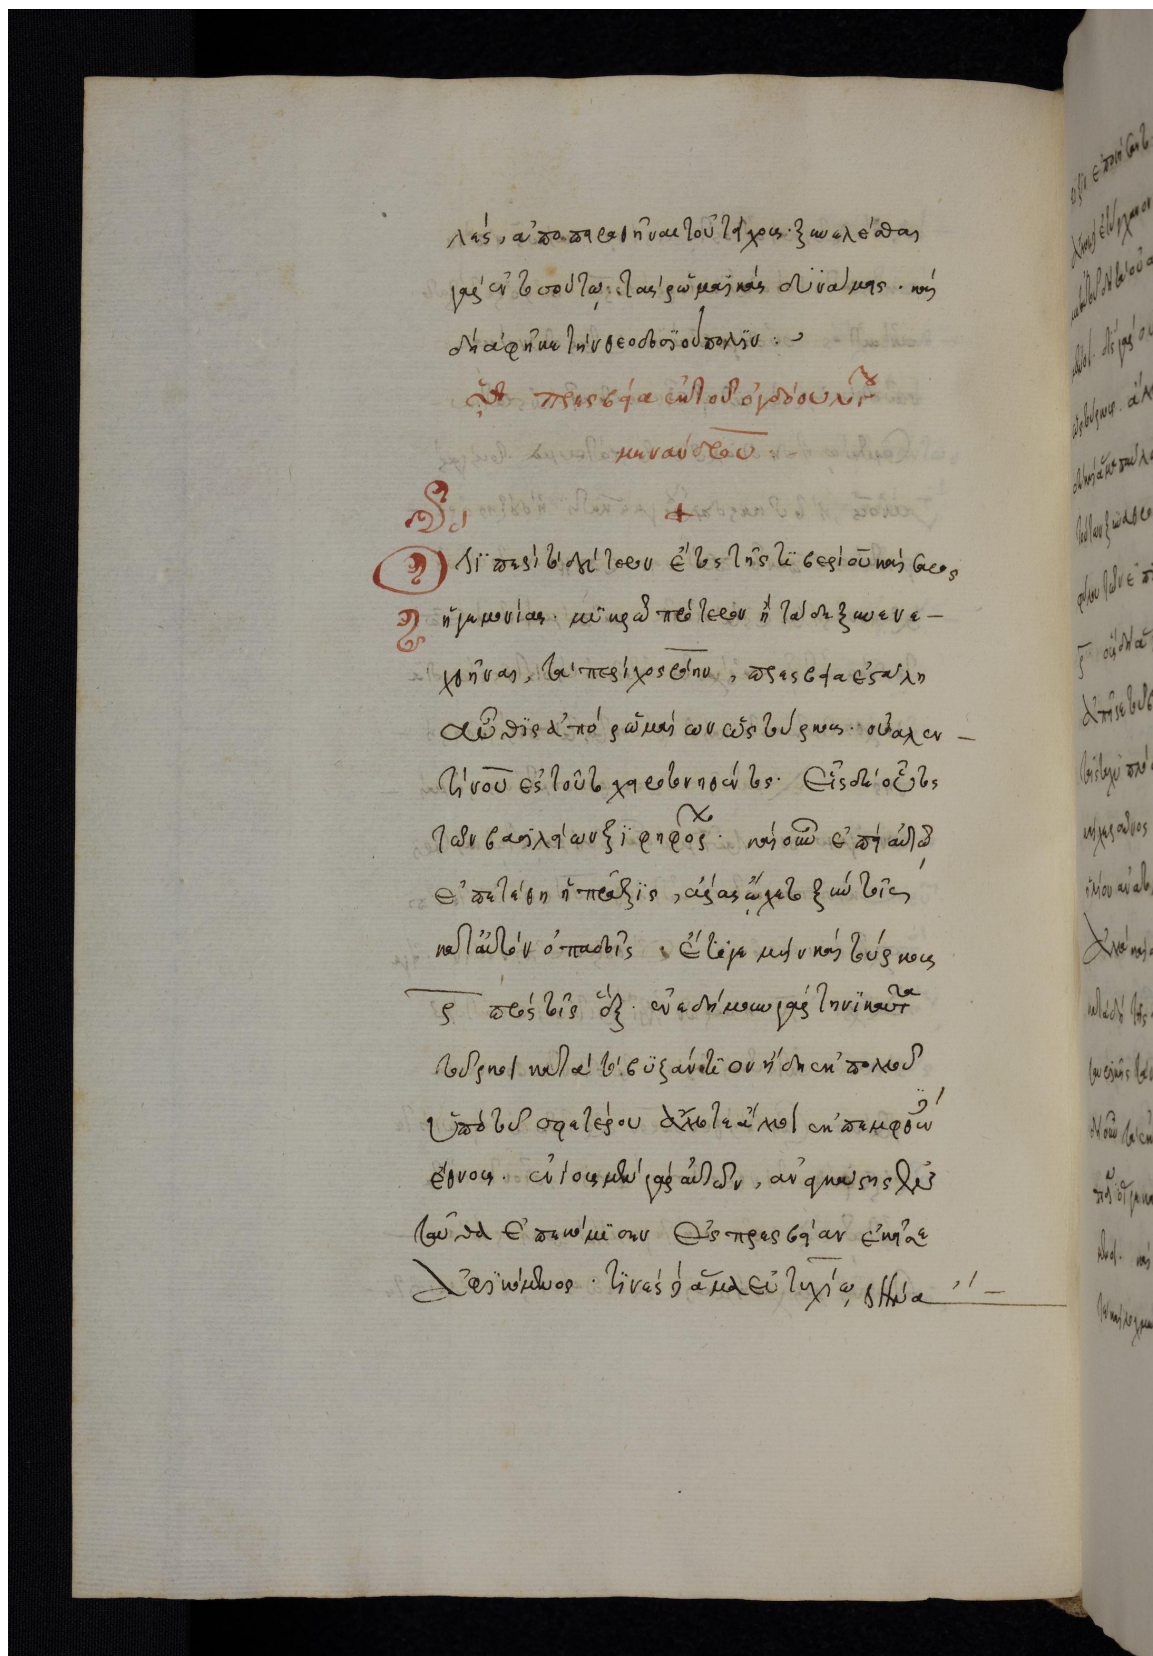 λὰς, ἀποπειραθῆναι τοῦ τείχους· ξυνελέσθαι
γὰρ ἐν τοσούτω τὰς ῥωμαϊκὰς δυνάμεις· καὶ
δὴ ἀφῆκε τὴν θεοδοσϊούπολϊν:
πρεσβεία ἐκ τοῦ ὀγδόου λόγου
μενάνδρου:-
Ὅτι περὶ τὸ δεύτερον ἔτος τῆς τϊβερίου καίσαρος
ἡγεμονίας· μϊκρῶ πρότερον ἢ τάδε ξυνενε-
χθῆναι, τὰ περὶ χοσρόην, πρεσβεία ἐστάλη
αὖθϊς ἀπὸ ῥωμαίων ὡς τούρκους· οὐαλεν-
τίνου ἐς τοῦτο χειροτονηθέντος· εἷς δὲ οὗτος
τῶν βασιλείων ξϊφηφόρος· καὶ οὖν ἐπεὶ αὐτῶ
ἐπετέθη ἡ πρᾶξϊς, ἄρας ᾤχετο ξὺν τοῖς
κατ' αὐτὸν ὀπαδοῖς· ἔτι γε μὴν καὶ τούρκοις
ϛ πρὸς τοῖς ἑξ· ἐνεδήμουν γὰρ τηνϊκαῦτα
τοῦρκοι κατὰ τὸ βϋζάντϊον ἤδη ἐκ πολλοῦ
ὑπὸ τοῦ σφετέρου ἄλλοτε ἄλλοι ἐκπεμφθέντων
ἔθνους· ἐνίους μὲν γὰρ αὐτῶν, ἀναγκάστης
ταῦθα ἐπεκόμϊσεν ἐς πρεσβείαν ἐκεῖσε
ἀφϊκόμενος· τϊνὲς δὲ ἅμα εὐτυχίω